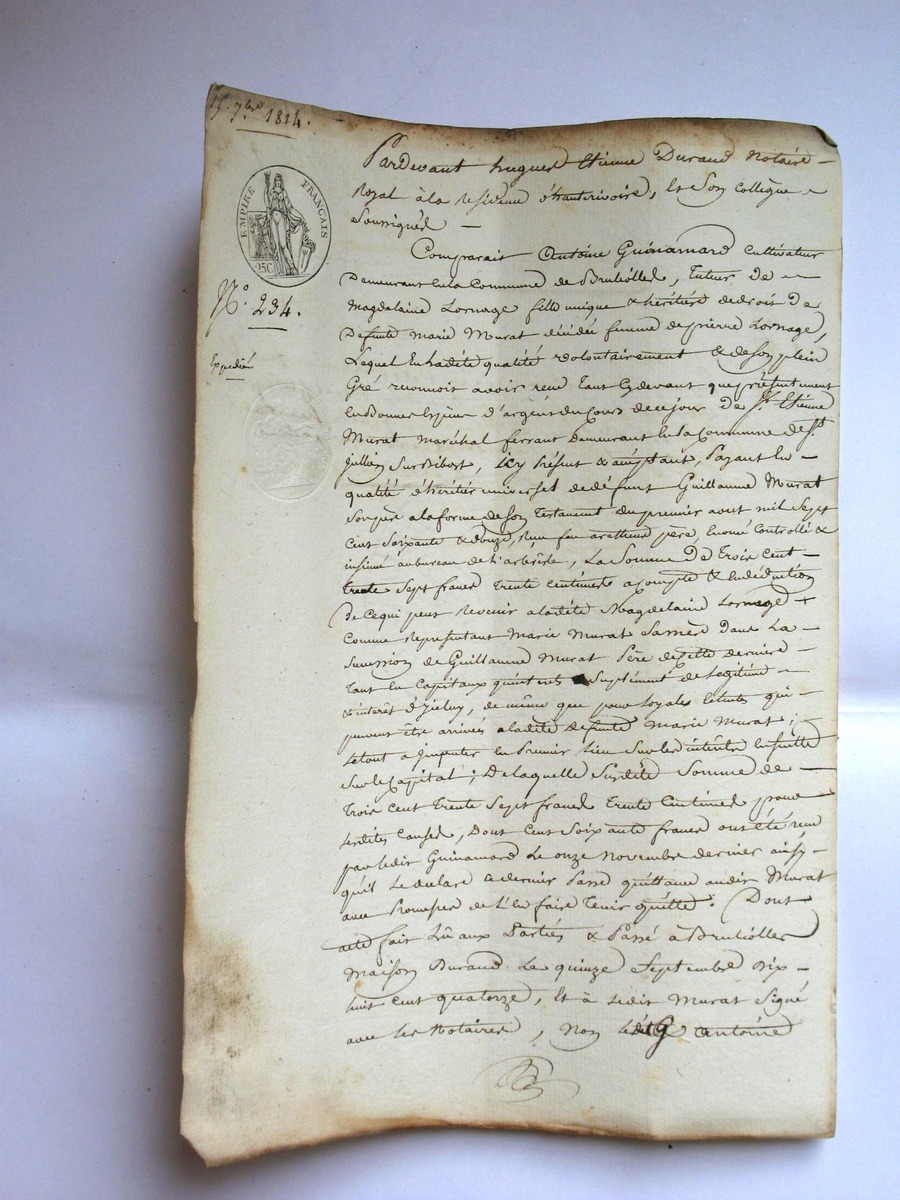 15. 7bre 1814.
EMPIRE FRANÇAIS
25C
N°. 234.
Expedié
Pardevant hugues Etienne Durand Notaire
Royal à la Residence d'hauterivoire, et Son collègue
Soussignés
Comparait Antoine Guinamard cultivateur
Demeurant En la Commune de Brullolles, tuteur De
Magdelaine Lornage fille unique & héritière de droit De
Defunte Marie Murat décédée femme de pierre Lornage,
Lequel En ladite qualité volontairement & de Son plein
Gré reconnoit avoir recu tant Cydevant que présentement
En Bonnes Espèces d'argent du Cours de ce jour De Sr. Etienne
Murat Maréchal ferrant Demeurant En la Commune de St.
jullien Sur Bibost, icy Présent & acceptant, Payant En
qualité d'héritier universel de défunt Guillaume Murat
Son père a la forme de Son Testament du premier aout mil Sept
Cent Soixante & douze, Recu père, Controllé &
insinué au bureau de l'arbrêsle, La Somme De Trois Cent
trente Sept francs Trente Centimes a Compte & En déduction
De Cequi peut Revenir a ladite Magdelaine Lornage
Comme Représentant Marie Murat Sa mère Dans La
Succession de Guillaume Murat Père de Cette dernière
tant En Capitaux Suplément de Légitime
& intérêt d'Iceluy, de même que pour Loyales Echutes qui
peuvent être arrivées a ladite defunte Marie Murat;
Le tout a Imputer En Premier Lieu Sur les intérêts Ensuitte
Sur le Capital; De laquelle Susdite Somme de
Trois Cent Trente Sept francs Trente Centimes pour
Lesdites Causes, Dont Cent Soixante francs ont été recu
par ledit Guinamard Le onze Novembre dernier ainsy
qu'il Le declare Ce dernier Passe quittance audit Murat
avec Promesse de L'En faire Tenir quitte. Dont
acte fait Lû aux Parties & Passé à Brullolles
Maison Durand Le quinze Septembre Dix
huit cent quatorze, Et à Ledit Murat Signé
avec les Notaires, Non Antoine